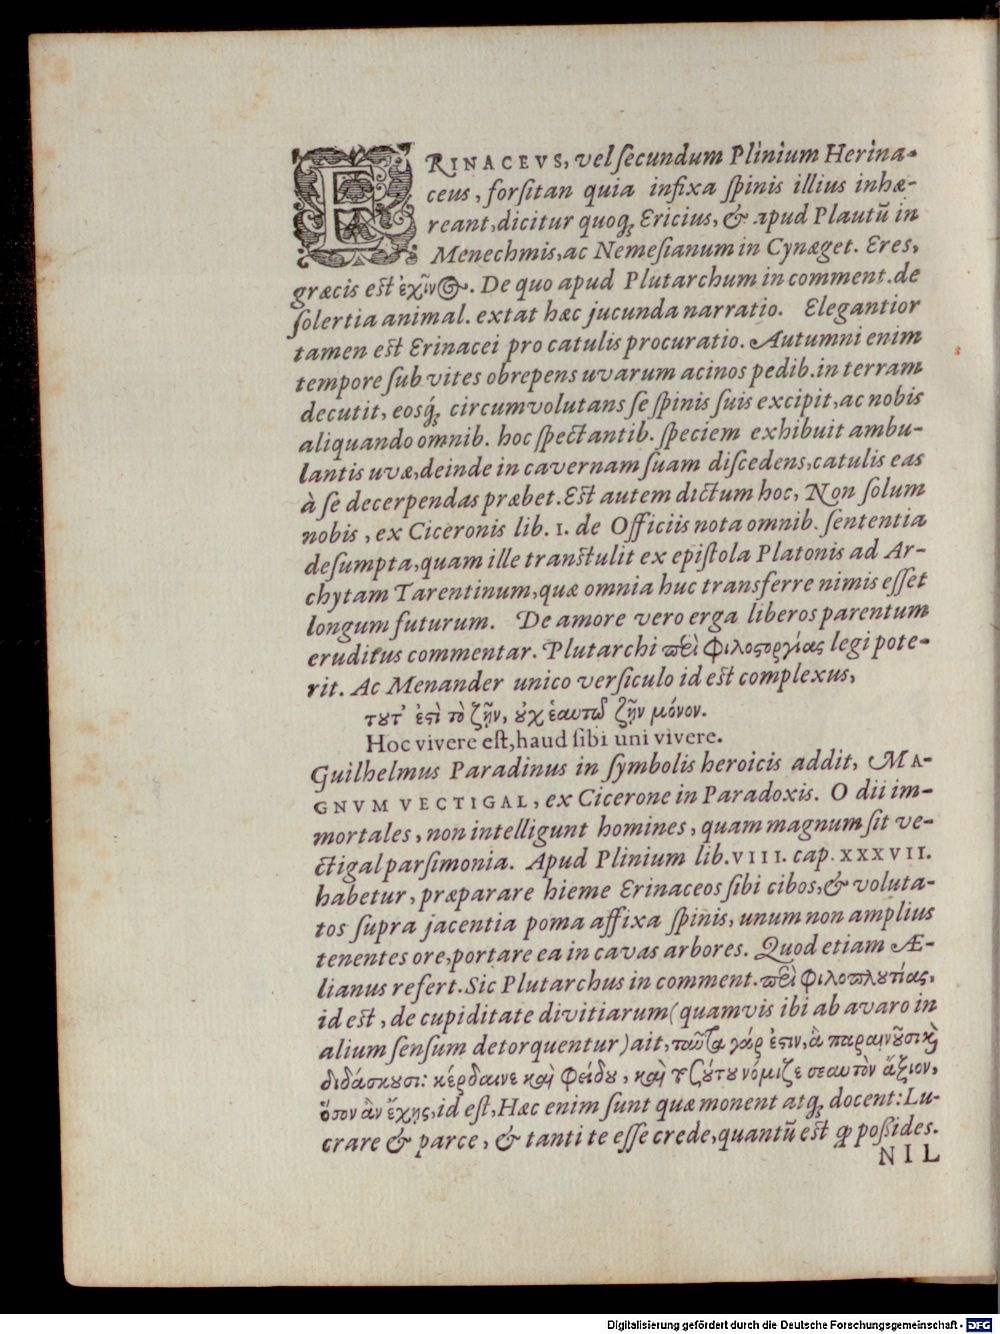 ERINACEVS, vel ſecundum Plinium Herina-
ceus, forſitan quia infixa ſpinis illius inhæ-
reant, dicitur quoq; Ericius, & apud Plautū in
Menechmis, ac Nemeſianum in Cynæget. Eres,
græcis eſt ἐχῖνος. De quo apud Plutarchum in comment. de
ſolertia animal. extat hæc jucunda narratio. Elegantior
tamen eſt Erinacei pro catulis procuratio. Autumni enim
tempore ſub vites obrepens uvarum acinos pedib. in terram
decutit, eosq́; circumvolutans ſe ſpinis ſuis excipit, ac nobis
aliquando omnib. hoc ſpectantib. ſpeciem exhibuit ambu-
lantis uvæ, deinde in cavernam ſuam diſcedens, catulis eas
à ſe decerpendas præbet. Eſt autem dictum hoc, Non ſolum
nobis, ex Ciceronis lib. 1. de Officiis nota omnib. ſententia
deſumpta, quam ille tranſtulit ex epiſtola Platonis ad Ar-
chytam Tarentinum, quæ omnia huc transferre nimis eſſet
longum futurum. De amore vero erga liberos parentum
eruditus commentar. Plutarchi πεὶ φιλοϛοργίας legi pote-
rit. Ac Menander unico verſiculo id eſt complexus,
τȣτ' ἐϛὶ τὸ ζῇν, ȣχ ἑαυτῷ ζῇν μόνον.
Hoc vivere eſt, haud ſibi uni vivere.
Guilhelmus Paradinus in ſymbolis heroicis addit, MA-
GNVM VECTIGAL, ex Cicerone in Paradoxis. O dii im-
mortales, non intelligunt homines, quam magnum ſit ve-
ctigal parſimonia. Apud Plinium lib. VIII. cap. XXXVII.
habetur, præparare hieme Erinaceos ſibi cibos, & voluta-
tos ſupra jacentia poma affixa ſpinis, unum non amplius
tenentes ore, portare ea in cavas arbores. Quod etiam Æ-
lianus refert. Sic Plutarchus in comment. πεὶ φιλοπλȣτίας,
id eſt, de cupiditate divitiarum (quamvis ibi ab avaro in
alium ſenſum detorquentur) ait, ταῦτα γάρ ἐϛιν, ἃ παραινȣ͂σι κ̀
διδάσκȣσι: κέρδαινε καὶ φείδȣ, καὶ τοσούτȣ νόμιζε σεαυτὸν ἄξιον,
ὅσον ἂν ἔχῃς, id eſt, Hæc enim ſunt quæ monent atq; docent: Lu-
crare & parce, & tanti te eſſe crede, quantū eſt qđ poßides.
NIL
Digitalisierung gefördert durch die Deutsche Forschungsgemeinschaft - DFG